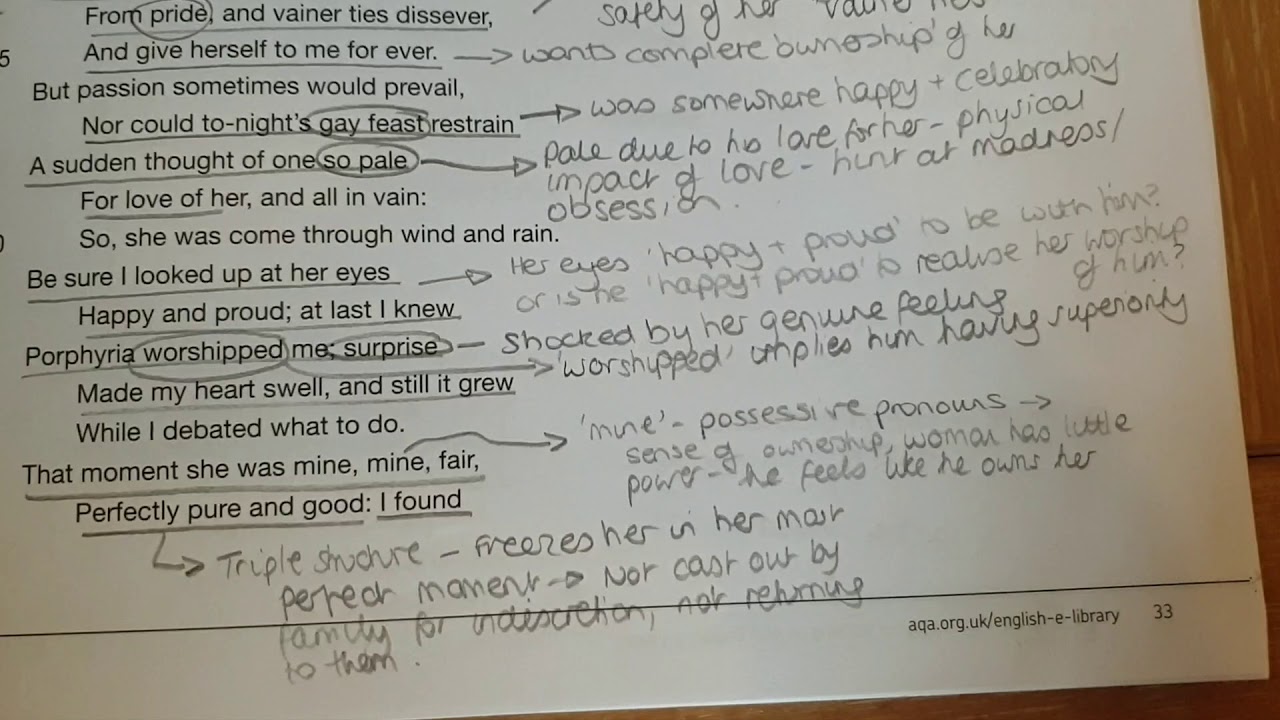 safety of her 'vainer ties'
From pride, and vainer ties dissever,
5
And give herself to me for ever.
wants complete 'ownership' of her
But passion sometimes would prevail,
Nor could to-night's gay feast restrain
was somewhere happy + celebratory
A sudden thought of one so pale
pale due to his love for her - physical
impact of love - hint at madness/
obsession.
For love of her, and all in vain:
0
So, she was come through wind and rain.
Be sure I looked up at her eyes
Her eyes 'happy + proud' to be with him?
or is he 'happy + proud' to realise her worship
of him?
Happy and proud; at last I knew
Porphyria worshipped me; surprise
- Shocked by her genuine feeling
'worshipped' implies him having superiority
Made my heart swell, and still it grew
While I debated what to do.
'mine' - possessive pronouns →
sense of ownership, woman has little
power - he feels like he owns her
That moment she was mine, mine, fair,
Perfectly pure and good: I found
Triple structure - freezes her in her most
perfect moment → Not cast out by
family for indiscretion, not returning
to them.
aqa.org.uk/english-e-library 33